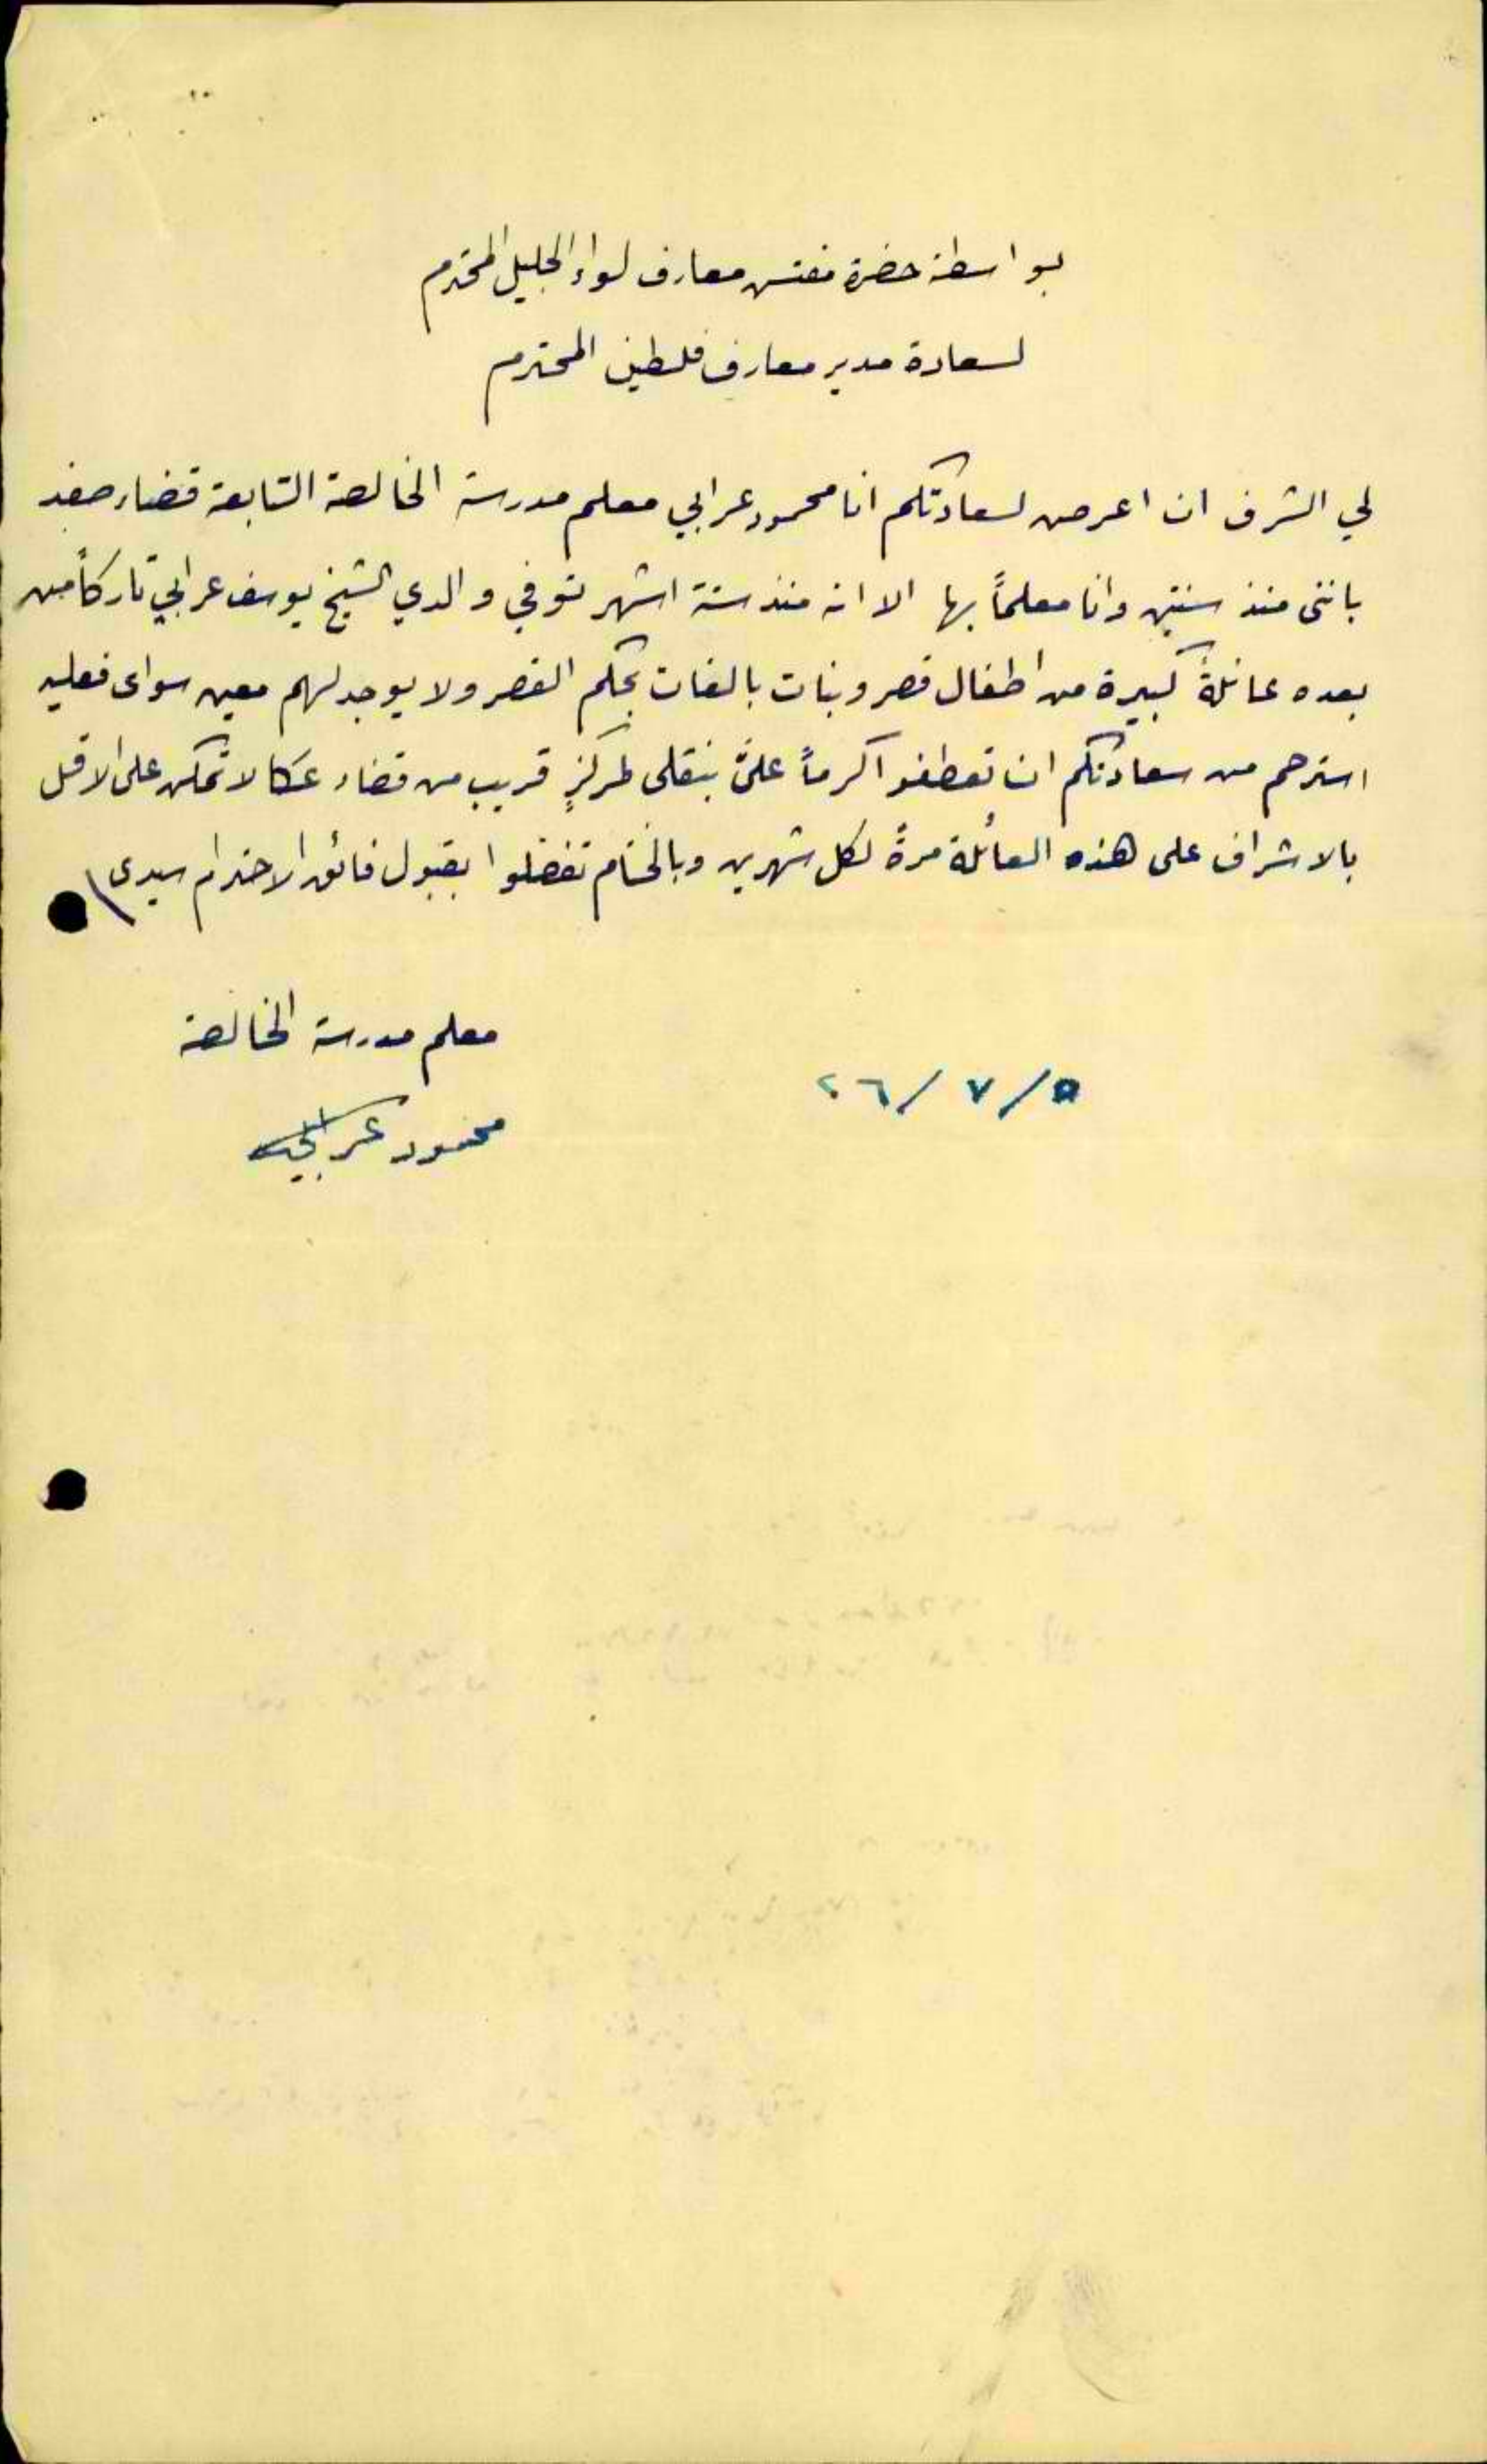 بواسطة حضرة مفتش معارف لواء الجليل المحترم
لسعادة مدير معارف فلسطين المحترم
لي الشرف ان اعرض لسعادتكم انا محمود عرابي معلم مدرسة الخالصة التابعة قضاء صفد
بانني منذ سنتين وانا معلماً بها الا انه منذ ستة اشهر توفي والدي الشيخ يوسف عرابي تاركاً من
بعده عائلةً كبيرة من اطفال قصر وبنات بالغات بحكم القصر ولا يوجد لهم معين سواى فعليه
استرحم من سعادتكم ان تعطفوا كرماً علىَّ بنقلى لمركزٍ قريب من قضاء عكا لاتمكن على الاقل
بالاشراف على هذه العائلة مرةً لكل شهرين وبالختام تفضلوا بقبول فائق الاحترام سيدى
معلم مدرسة الخالصة
٥/ ٧ /٢٦
محمود عرابي